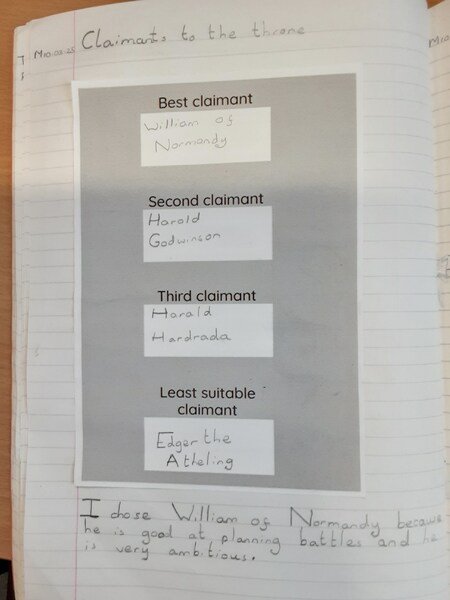 M10.03.25 Claimants to the throne
Best claimant
William of
Normandy
Second claimant
Harold
Godwinson
Third claimant
Harald
Hardrada
Least suitable
claimant
Edger the
Atheling
I chose William of Normandy because
he is good at planning battles and he
is very ambitious.